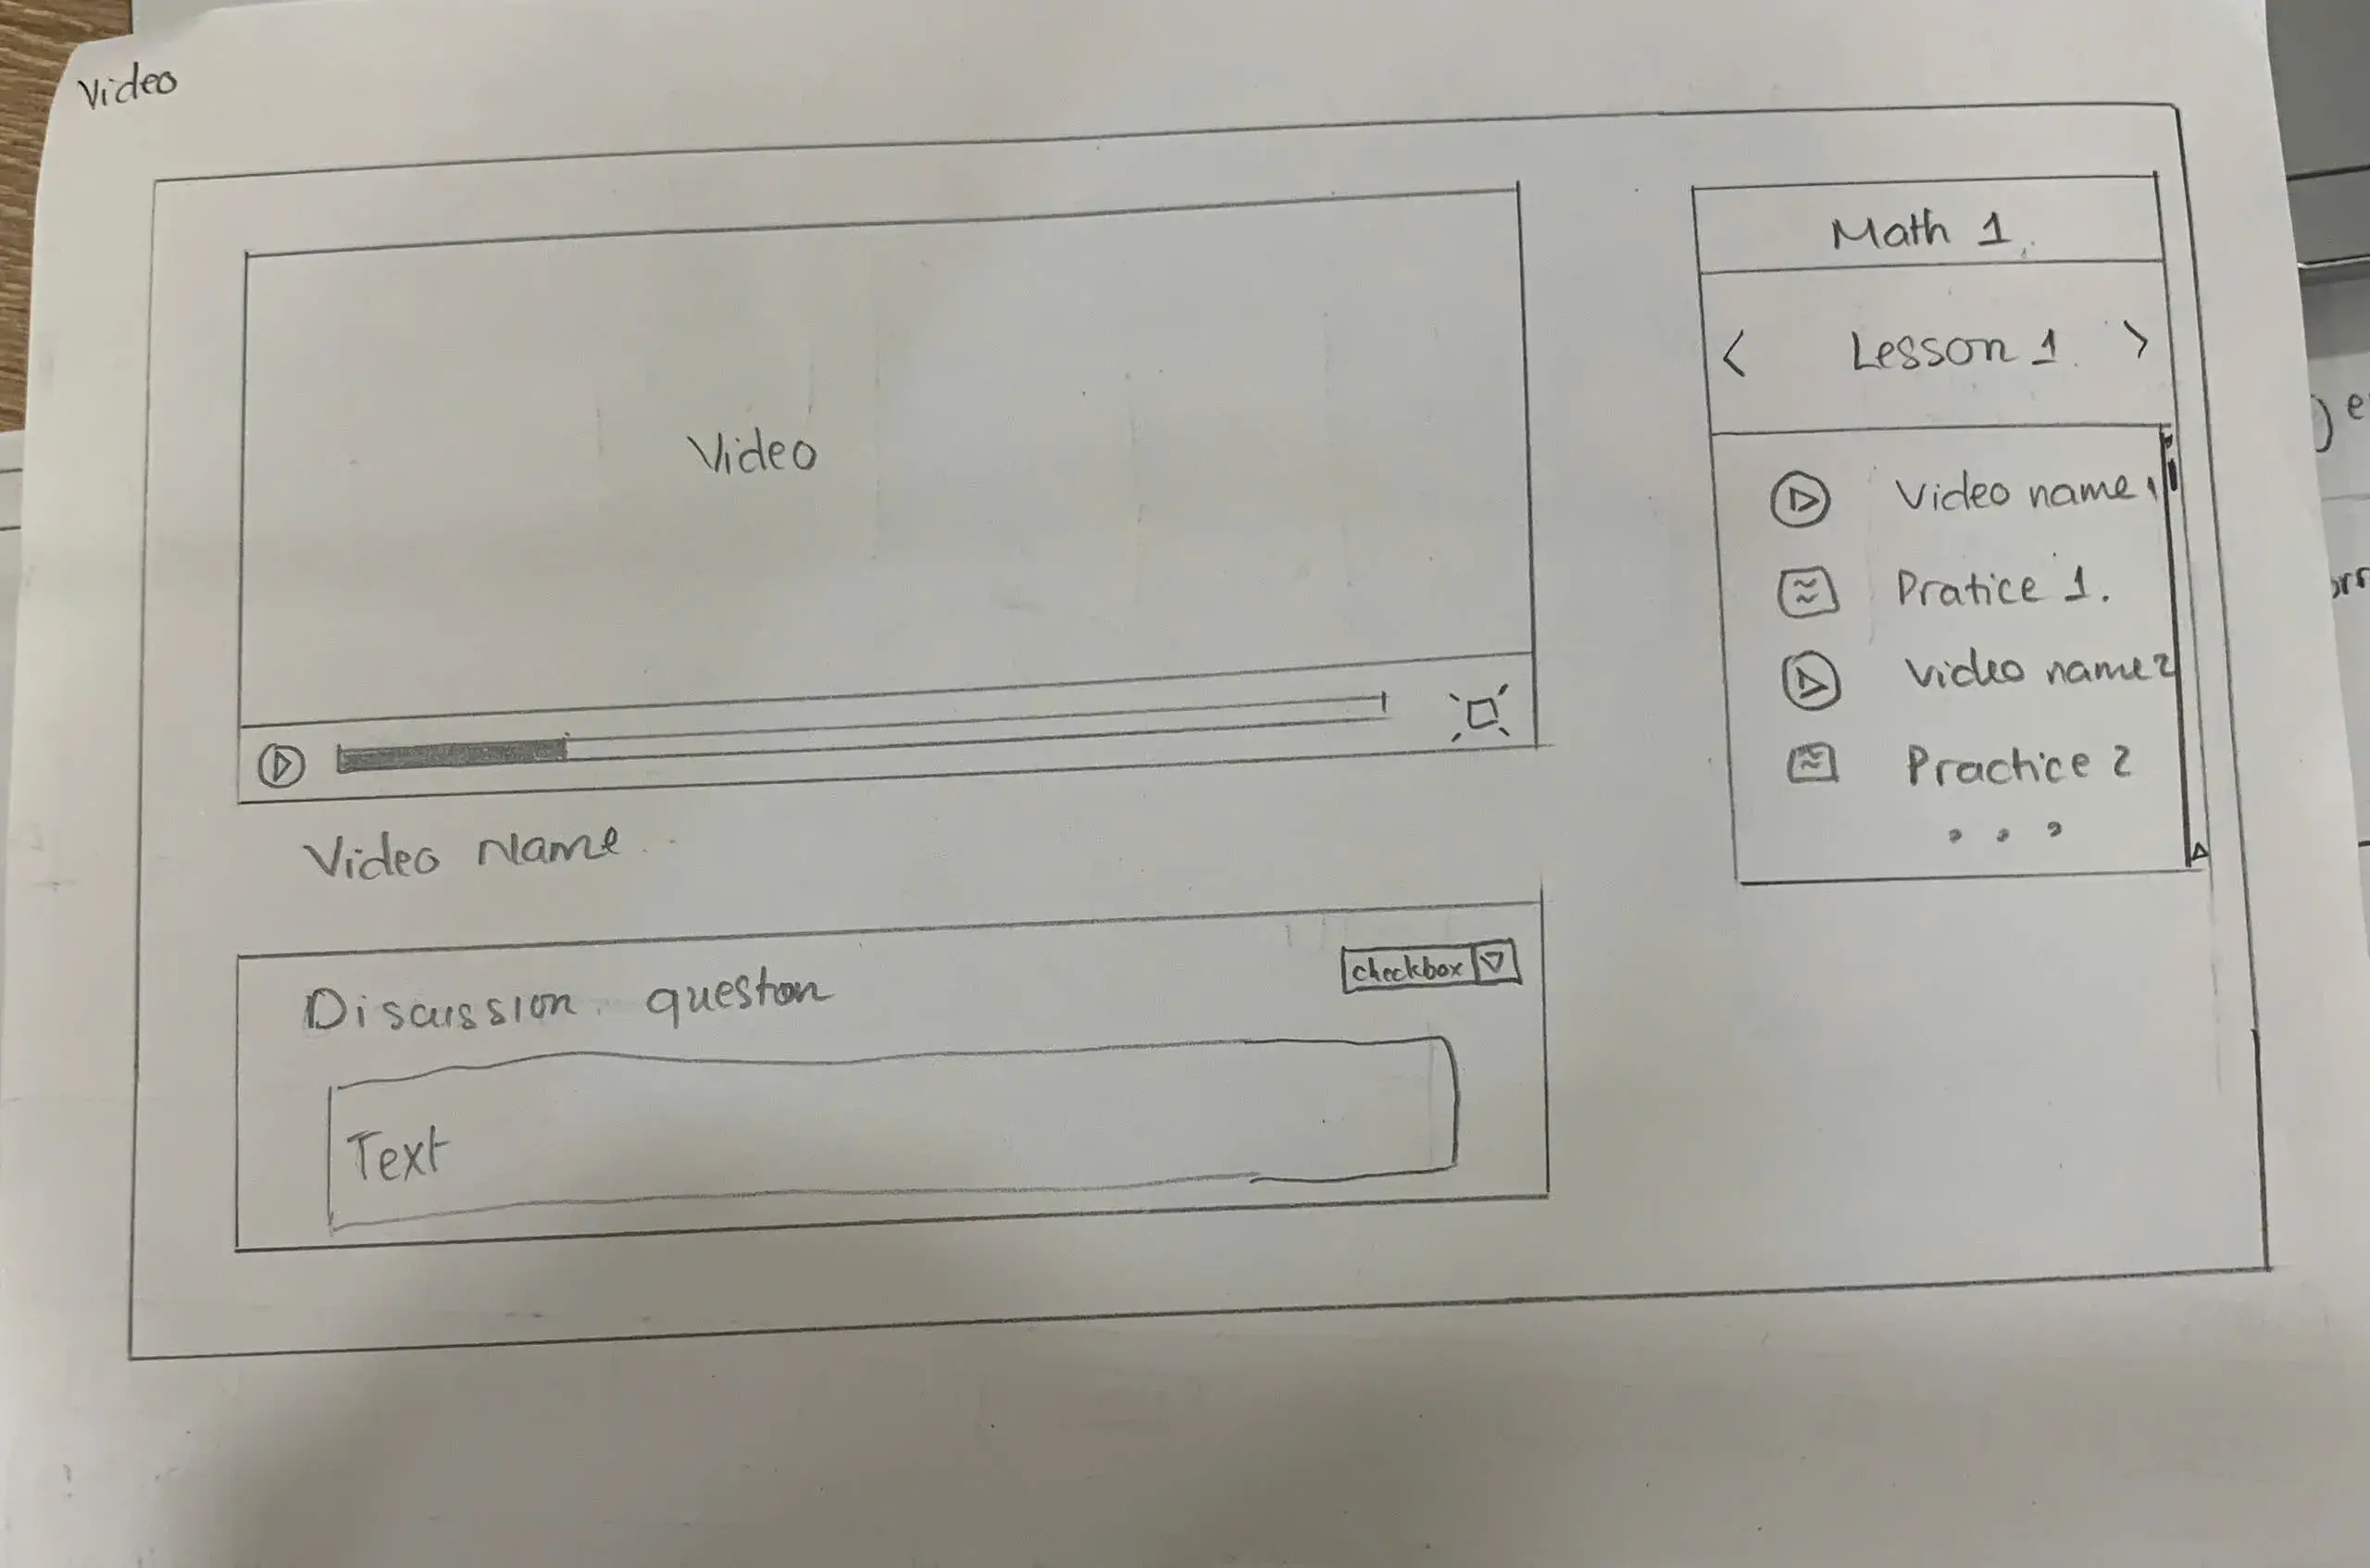 Video
Video
Video Name
Discussion question
checkbox
Text
Math 1.
< Lesson 1. >
Video name 1
Pratice 1.
Video name 2
Practice 2
...